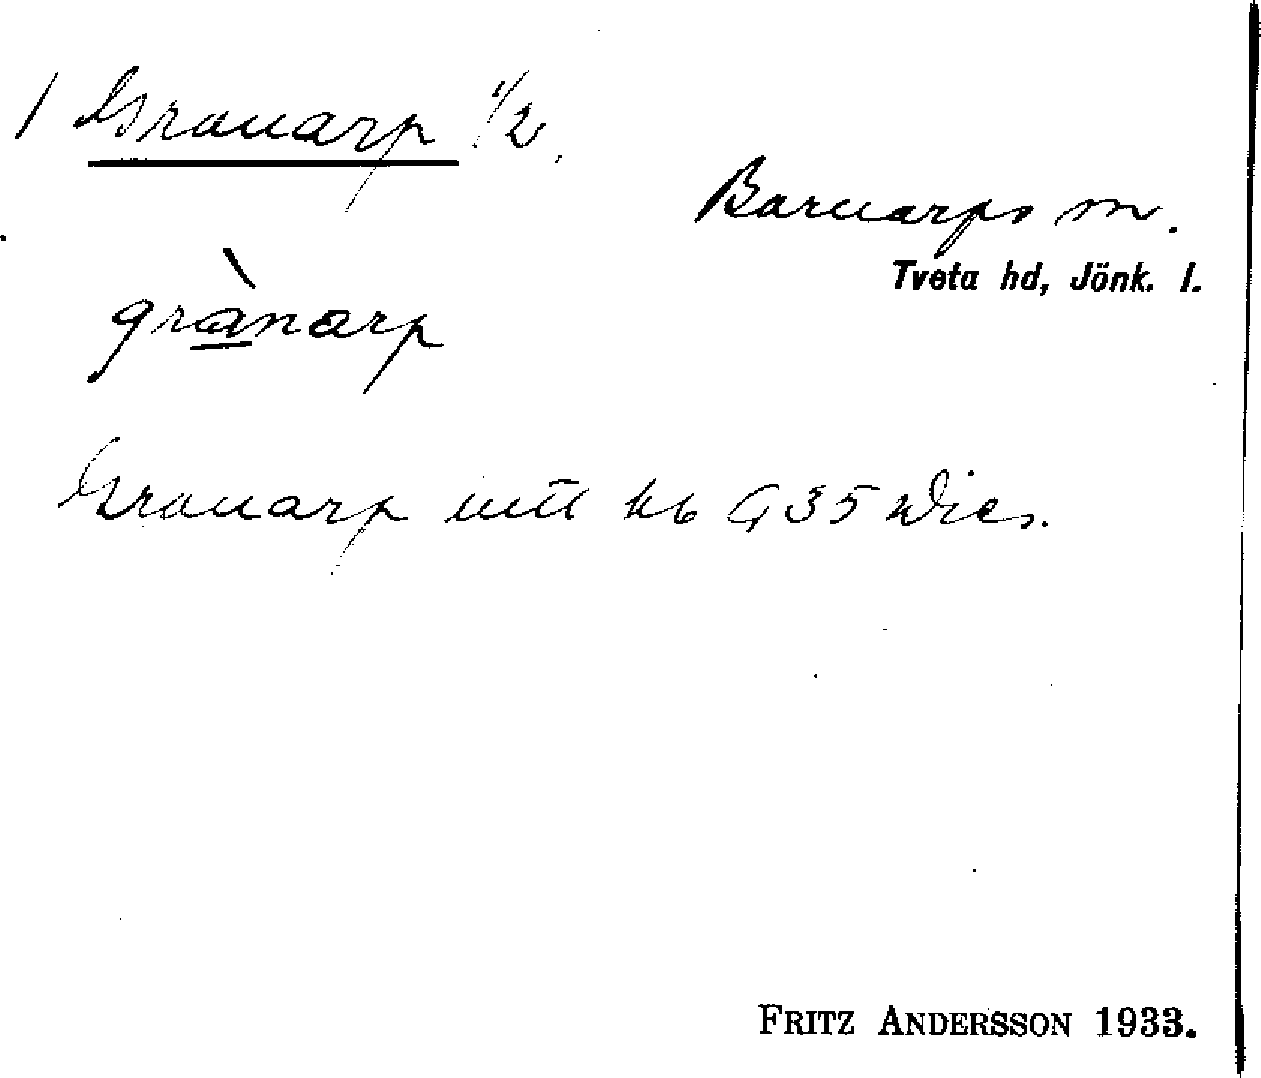 1 Granarp 1/2.
Barnarps sn.
Tveta hd, Jönk. l.
grànarp
Granarp mtl kb G 35 Dics.
FRITZ ANDERSSON 1933.